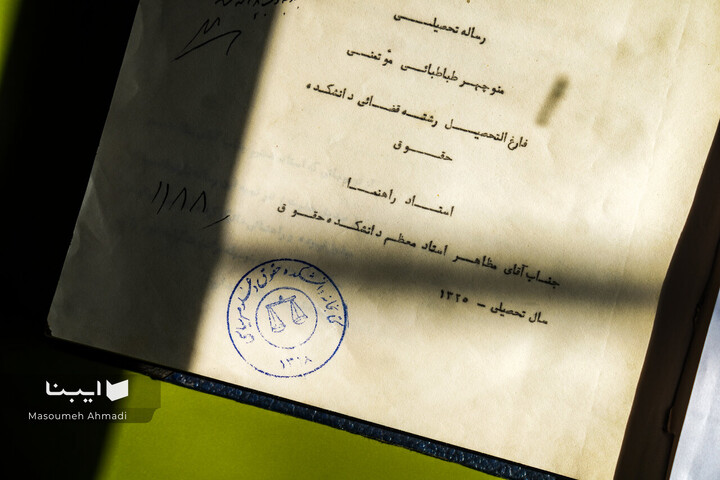 رساله تحصیلی
منوچهر طباطبائی مؤتمنی
فارغ التحصیل رشته قضائی دانشکده
حقوق
استاد راهنما
جناب آقای مظاهر استاد معظم دانشکده حقوق
سال تحصیلی - ۱۳۲۵
۱۱۸۸
کتابخانه دانشکده حقوق و علوم سیاسی
۱۳۰۸
ایبنا
Masoumeh Ahmadi